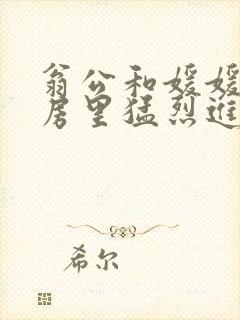 翁公和媛媛
居里猛烈进
希尔